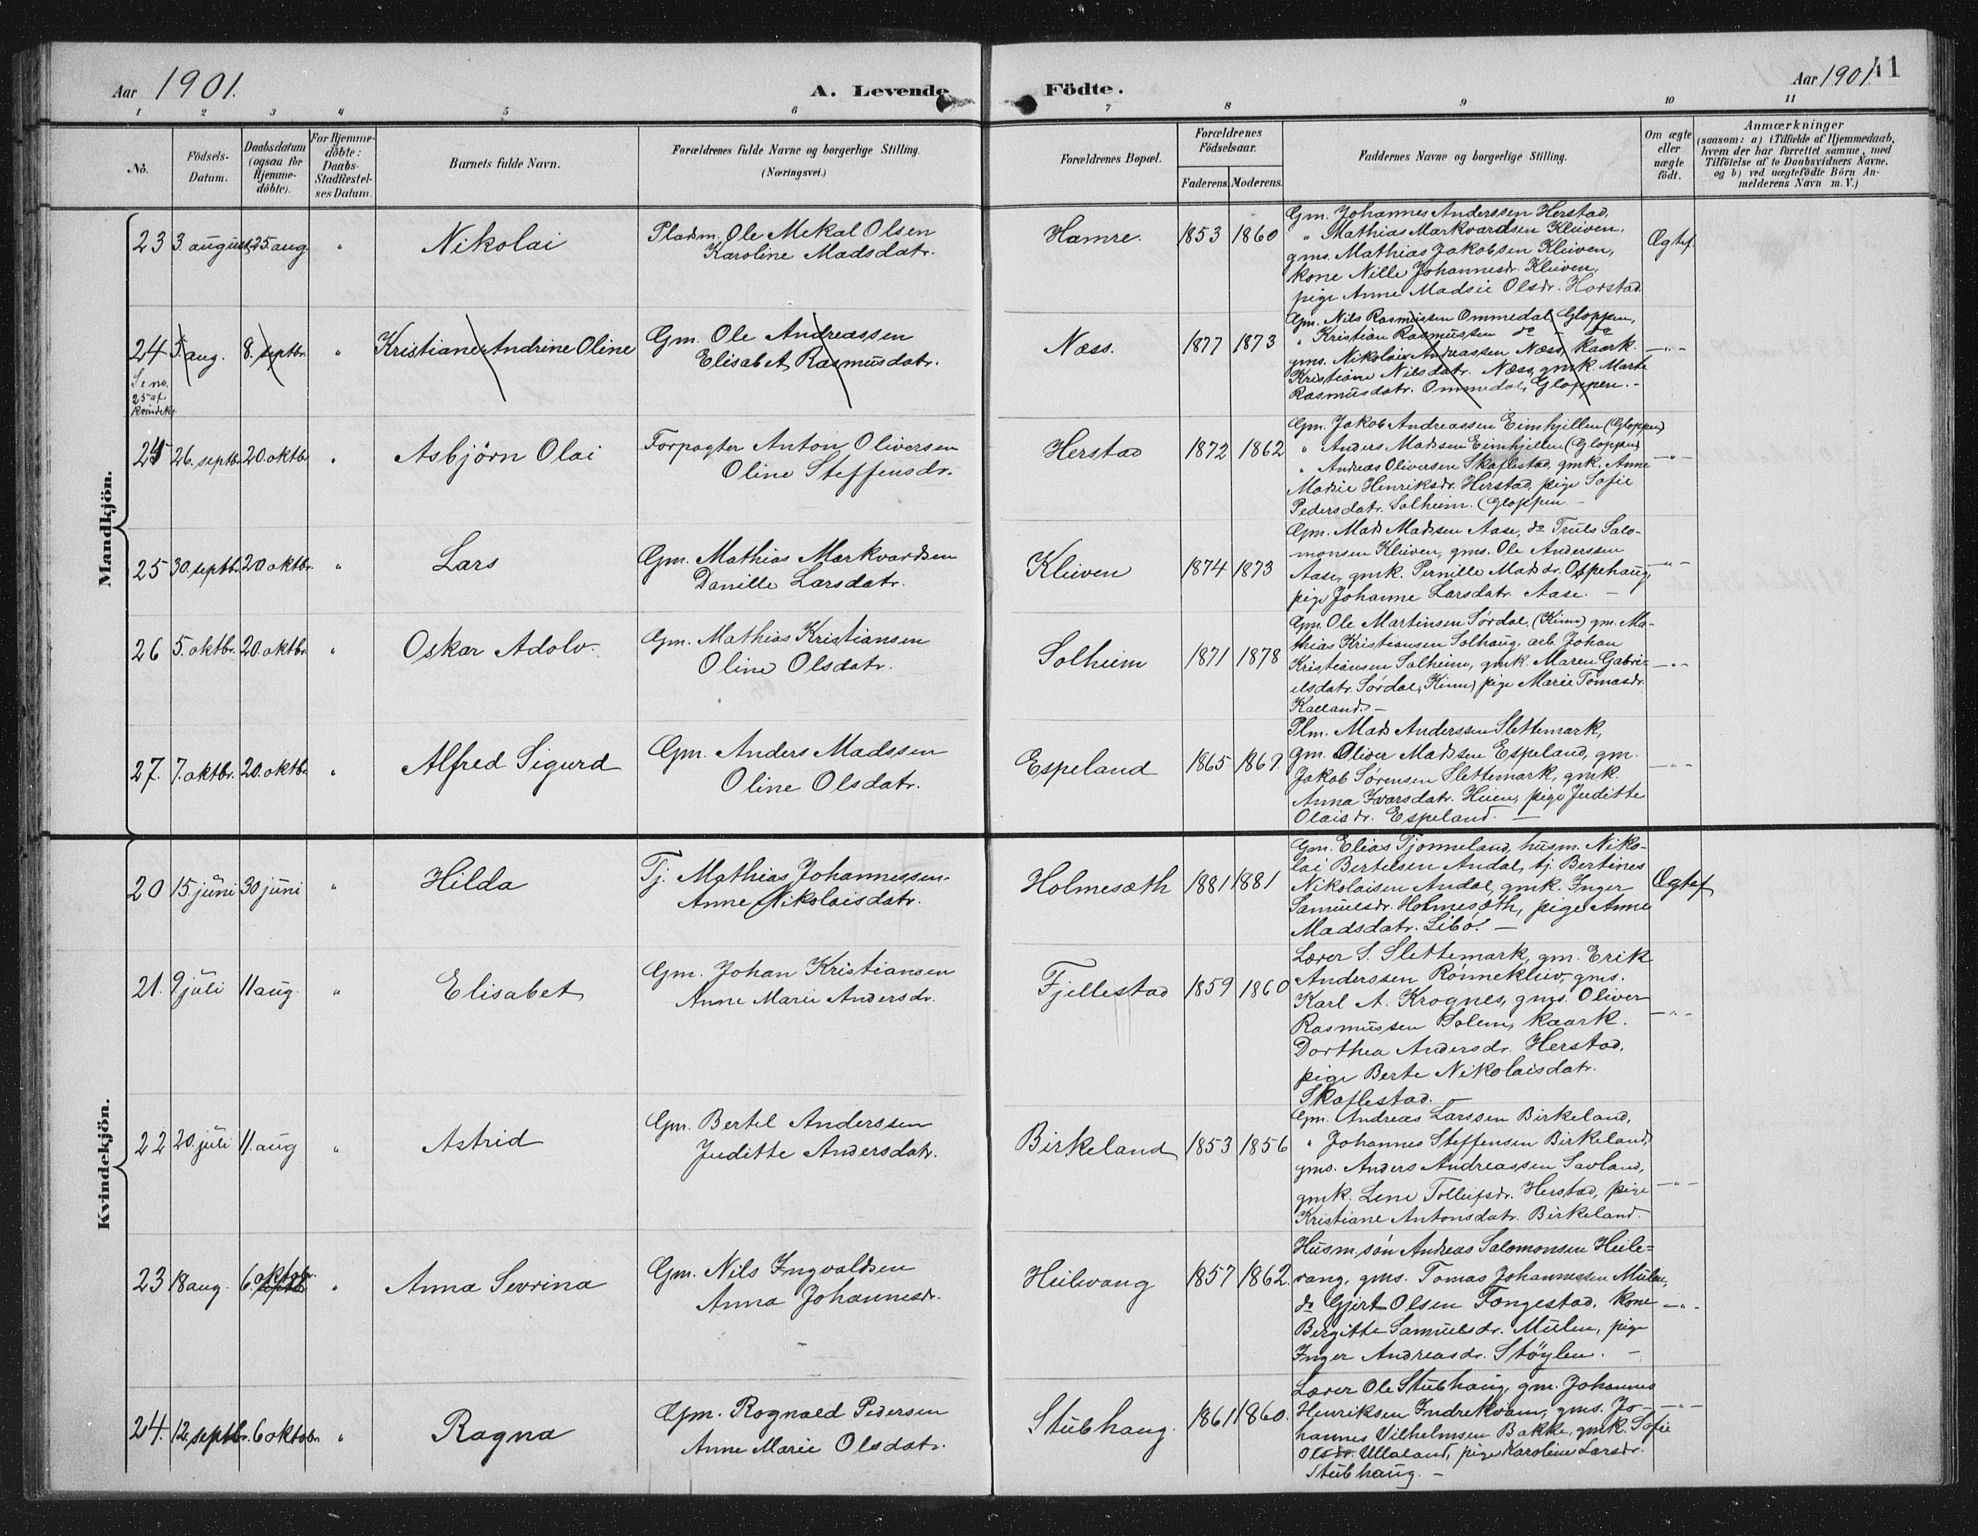 Aar 1901. A. Levende Födte. Aar 1901. 41
1 2 3 4 5 6 7 8 9 10 11
No. Födsels-Datum. Daabsdatum (ogsaa for Hjemme-döbte). For Hjemme-döbte: Daabs-Stadfæstel-ses Datum. Barnets fulde Navn. Forældrenes fulde Navne og borgerlige Stilling. (Næringsvei.) Forældrenes Bopæl. Forældrenes Födselsaar. Faderens. Moderens. Faddernes Navne og borgerlige Stilling. Om ægte eller uægte födt. Anmærkninger (saasom: a) i Tilfælde af Hjemmedaab, hvem der har forrettet samme, med Tilföielse af to Daabsvidners Navne, og b) ved uægtefödte Börn An-melderens Navn m. V.)
Mandkjön.
23 3 august 25 aug. " Nikolai Pladsm. Ole Mekal Olsen
Karoline Madsdatr. Hamre. 1853 1860 Gm. Johannes Anderssen Herstad,
" Mathias Markvardsen Kleiven,
gms. Mathias Jakobsen Kleiven,
kone Nille Johannesdr. Kleiven,
pige Anne Madsie Olsdr. Horstad. Ægtef
24 5 aug. 8. septbr. " Kristiane Andrine Oline Gm. Ole Andreassen
Elisabet Rasmusdatr. Næss. 1877 1873 Gm. Nils Rasmussen Ommedal, Gloppen,
" Kristian Rasmussen do - do
gms. Nikolai Andreassen Næss, kaark.
Kristiane Nilsdatr. Næss, gmk. Marte
Rasmusdatr. Ommedal, Gloppen. - — " —
Se no.
25 af
kvindekj.
24 26. septbr. 20. oktbr. " Asbjörn Olai Forpagter Anton Oliversen
Oline Steffensdr. Herstad 1872 1862 Gm. Jakob Andreassen Eimhjellen (Gloppen)
" Anders Madsen Eimhjellen (Gloppen)
" Andreas Oliversen Skaflestad, gmk. Anne
Madsie Henriksdr. Herstad, pige Sofie
Pedersdatr. Solheim. (Gloppen — — " —
25 30. septbr. 20. oktbr. " Lars Gm. Mathias Markvardsen
Danille Larsdatr. Kleiven 1874 1873 Gm. Mads Madsen Aase, do Truls Salo-
monsen Kleiven, gms. Ole Anderssen
Aase, gmk. Pernille Madsdr. Oppehaug,
pige Johanne Larsdatr. Aase. — — " —
26 5. oktbr. 20. oktbr. " Oskar Adolv. Gm. Mathias Kristiansen
Oline Olsdatr. Solheim 1871 1878 Gm. Ole Martinsen Sørdal, (Kinn) gm. Ma-
thias Kristiansen Solhaug, arb. Johan
Kristiansen Solheim, gmk. Maren Gabri-
elsdatr. Sørdal, (Kinn) pige Marie Tomasdr.
Kalland. — — " —
27. 7. oktbr. 20. oktbr. " Alfred Sigurd Gm. Anders Madssen
Oline Olsdatr. Espeland 1865 1869 Plm. Mads Anderssen Slettemark,
gm. Oliver Madssen Espeland, gm.
Jakob Sørensen Slettemark, gmk.
Anna Ivarsdatr. Huen, pige Juditte
Olaisdr. Espeland. — — " —
Kvindekjön.
20 15. juni 30 juni " Hilda Tj. Mathias Johannessen.
Anne Nikolaisdatr. Holmesæth 1881 1881 Gm. Elias Tjønneland, husm. Niko-
lai Bertelsen Andal, tj. Bertines
Nikolaisen Andal, gmk. Inger
Samuelsdr. Holmesæth, pige Anne
Madsdatr. Libö. — Ægtef
21. 9 juli 11 aug. " Elisabet Gm. Johan Kristiansen
Anne Marie Andersdr. Fjellestad 1859 1860 Lærer S. Slettemark, gm. Erik
Anderssen Rönnekleiv, gms.
Karl A. Krognes, gms. Oliver
Rasmussen Solem, kaark.
Dorthea Andersdr. Herstad,
pige Berte Nikolaisdatr.
Skaflestad. — " —
22 20. juli 11. aug " Astrid Gm. Bertel Anderssen
Juditte Andersdatr. Birkeland 1853 1856 Gm. Andreas Larssen Birkeland,
" Johannes Steffensen Birkeland,
gms. Anders Andreassen Savland,
gmk. Lene Tollefsdr. Herstad, pige
Kristiane Antonsdatr. Birkeland. — " —
23 18 aug. 6. septbr oktobr. " Anna Sevrina Gm. Nils Ingvaldsen
Anna Johannesdr. Heilevang 1857 1862. Husm. søn Andreas Salomonsen Heile=
vang, gms. Tomas Johannessen Mulen,
do Gjert Olsen Tongestad, kone
Bergitte Samuelsdr. Mulen, pige
Inger Andreasdr. Stöylen. — — " —
24. 12. septbr. 6 oktobr. " Ragna Gm. Rognald Pedersen
Anne Marie Olsdatr. Stubhaug. 1861 1860. Lærer Ole Stubhaug, gm. Johannes
Henriksen Indrekvam, gms. Jo-
hannes Vilhelmsen Bakke, gmk. Sofie
Olsdr. Ullaland, pige Karoline Larsdr.
Stubhaug. — — " —